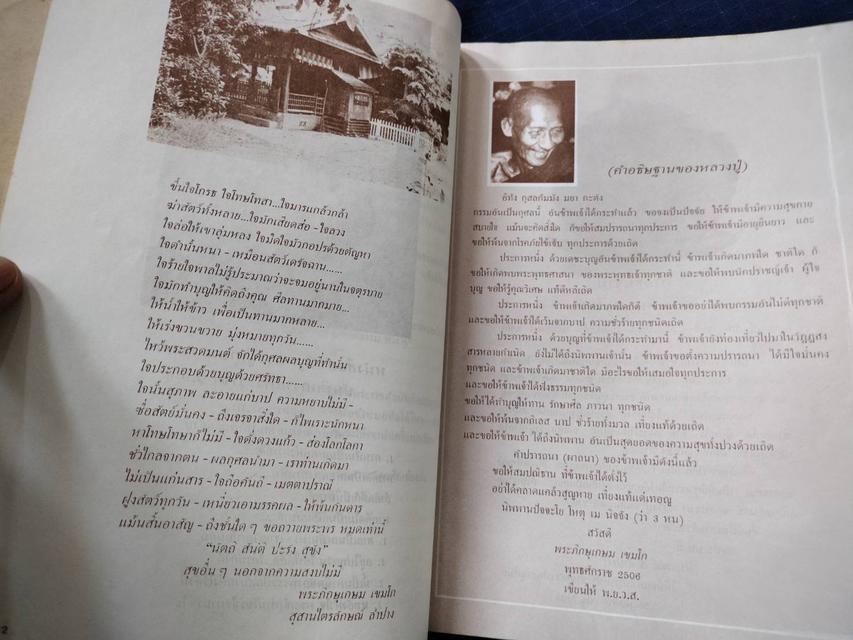 ขึ้นใจโกรธ ใจโทษโทสา...ใจมารแกล้วกล้า
ฆ่าสัตว์ทั้งหลาย...ใจมักเสียดส่อ - ใจลวง
ใจล่อให้เขาลุ่มหลง ใจมืดใจมัวกอปรด้วยตัญหา
ใจดำนั้นหนา - เหมือนสัตว์เดรัจฉาน......
ใจร้ายใจพาลไม่รู้ประมาณว่าจะจมอยู่นานในจตุรบาย
ใจมักทำบุญให้คิดถึงคุณ ศีลทานมากมาย...
ให้น้ำให้ข้าว เพื่อเป็นทานมากหลาย...
ให้เร่งขวนขวาย มุ่งหมายทุกวัน......
ไหว้พระสวดมนต์ จักได้กุศลผลบุญที่ทำนั้น
ใจประกอบด้วยบุญด้วยศรัทธา......
ใจนั้นสุภาพ ละอายแก่บาป ความหยาบไม่มี -
ซื่อสัตย์มั่นคง - ถึงเจรจาสิ่งใด - ก็ไพเราะนักหนา
หาโทษโทษาก็ไม่มี - ใจดั่งดวงแก้ว - ส่องโลกโลกา
ชั่วไกลจากตน - ผลกุศลนำมา - เราท่านเกิดมา
ไม่เป็นแก่นสาร - ใจถือคันถ์ - เมตตาปราณี
ฝูงสัตว์ทุกวัน - เหนี่ยวเอามรรคผล - ให้พ้นกันดาร
แม้นสิ้นอาสัญ - ถึงชั้นใด ๆ ขอถวายพระพร หมดเท่านี้
"นัตถิ สันติ ปะรัง สุขัง"
สุขอื่น ๆ นอกจากความสงบไม่มี
พระภิกษุเกษม เขมโก
สุสานไตรลักษณ์ ลำปาง
(คำอธิษฐานของหลวงปู่)
อิทัง กุสลกัมมัง มยา กะตัง
กรรมอันเป็นกุศลนี้ อันข้าพเจ้าได้กระทำแล้ว ขอจงเป็นปัจจัย ให้ข้าพเจ้ามีความสุขกาย
สบายใจ แม้นจะคิดสิ่งใด ก็ขอให้สมปรารถนาทุกประการ ขอให้ข้าพเจ้ามีอายุยืนยาว และ
ขอให้พ้นจากโรคภัยไข้เจ็บ ทุกประการด้วยเถิด
ประการหนึ่ง ด้วยเดชะบุญอันข้าพเจ้าได้กระทำนี้ ข้าพเจ้าเกิดมาภพใด ชาติใด ก็
ขอให้เกิดพบพระพุทธศาสนา ของพระพุทธเจ้าทุกชาติ และขอให้พบนักปราชญ์เจ้า ผู้ใจ
บุญ ขอให้รู้คุณวิเศษ แท้ดีหลีเถิด
ประการหนึ่ง ข้าพเจ้าเกิดมาภพใดก็ดี ข้าพเจ้าขออย่าได้พบกรรมอันไม่ดีทุกชาติ
และขอให้ข้าพเจ้าได้เว้นจากบาป ความชั่วร้ายทุกชนิดเถิด
ประการหนึ่ง ด้วยบุญที่ข้าพเจ้าได้กระทำมานี้ ข้าพเจ้ายังท่องเที่ยวไปมาในวัฏฏสง
สารหลายกำเนิด ยังไม่ได้ถึงนิพพานเจ้านั้น ข้าพเจ้าขอตั้งความปรารถนา ได้มีใจมั่นคง
ทุกชนิด และข้าพเจ้าเกิดมาชาติใด มีอะไรขอให้เสมอใจทุกประการ
และขอให้ข้าพเจ้าได้ฟังธรรมทุกชนิด
ขอให้ได้ทำบุญให้ทาน รักษาศีล ภาวนา ทุกชนิด
และขอให้พ้นจากกิเลส บาป ชั่วร้ายทั้งมวล เที่ยงแท้ด้วยเถิด
และขอให้ข้าพเจ้า ได้ถึงนิพพาน อันเป็นสุดยอดของความสุขทั้งปวงด้วยเถิด
คำปรารถนา (ผาถนา) ของข้าพเจ้ามีดังนี้แล้ว
ขอให้สมปณิธาน ที่ข้าพเจ้าได้ตั้งไว้
อย่าได้คลาดแคล้วสูญหาย เที่ยงแท้แด่เทอญ
นิพพานปัจจะโย โหตุ เม นิจจัง (ว่า 3 หน)
สวัสดี
พระภิกษุเกษม เขมโก
พุทธศักราช 2506
เขียนให้ พ.ย.ว.ส.